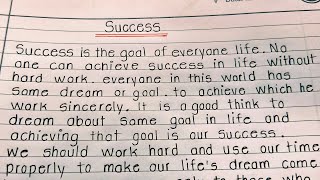 Success
Success is the goal of everyone life. No
one can achieve success in life without
hard work. everyone in this world has
some dream or goal. to achieve which he
work sincerely. It is a good think to
dream about some goal in life and
achieving that goal is our success.
We should work hard and use our time
properly to make our life's dream come